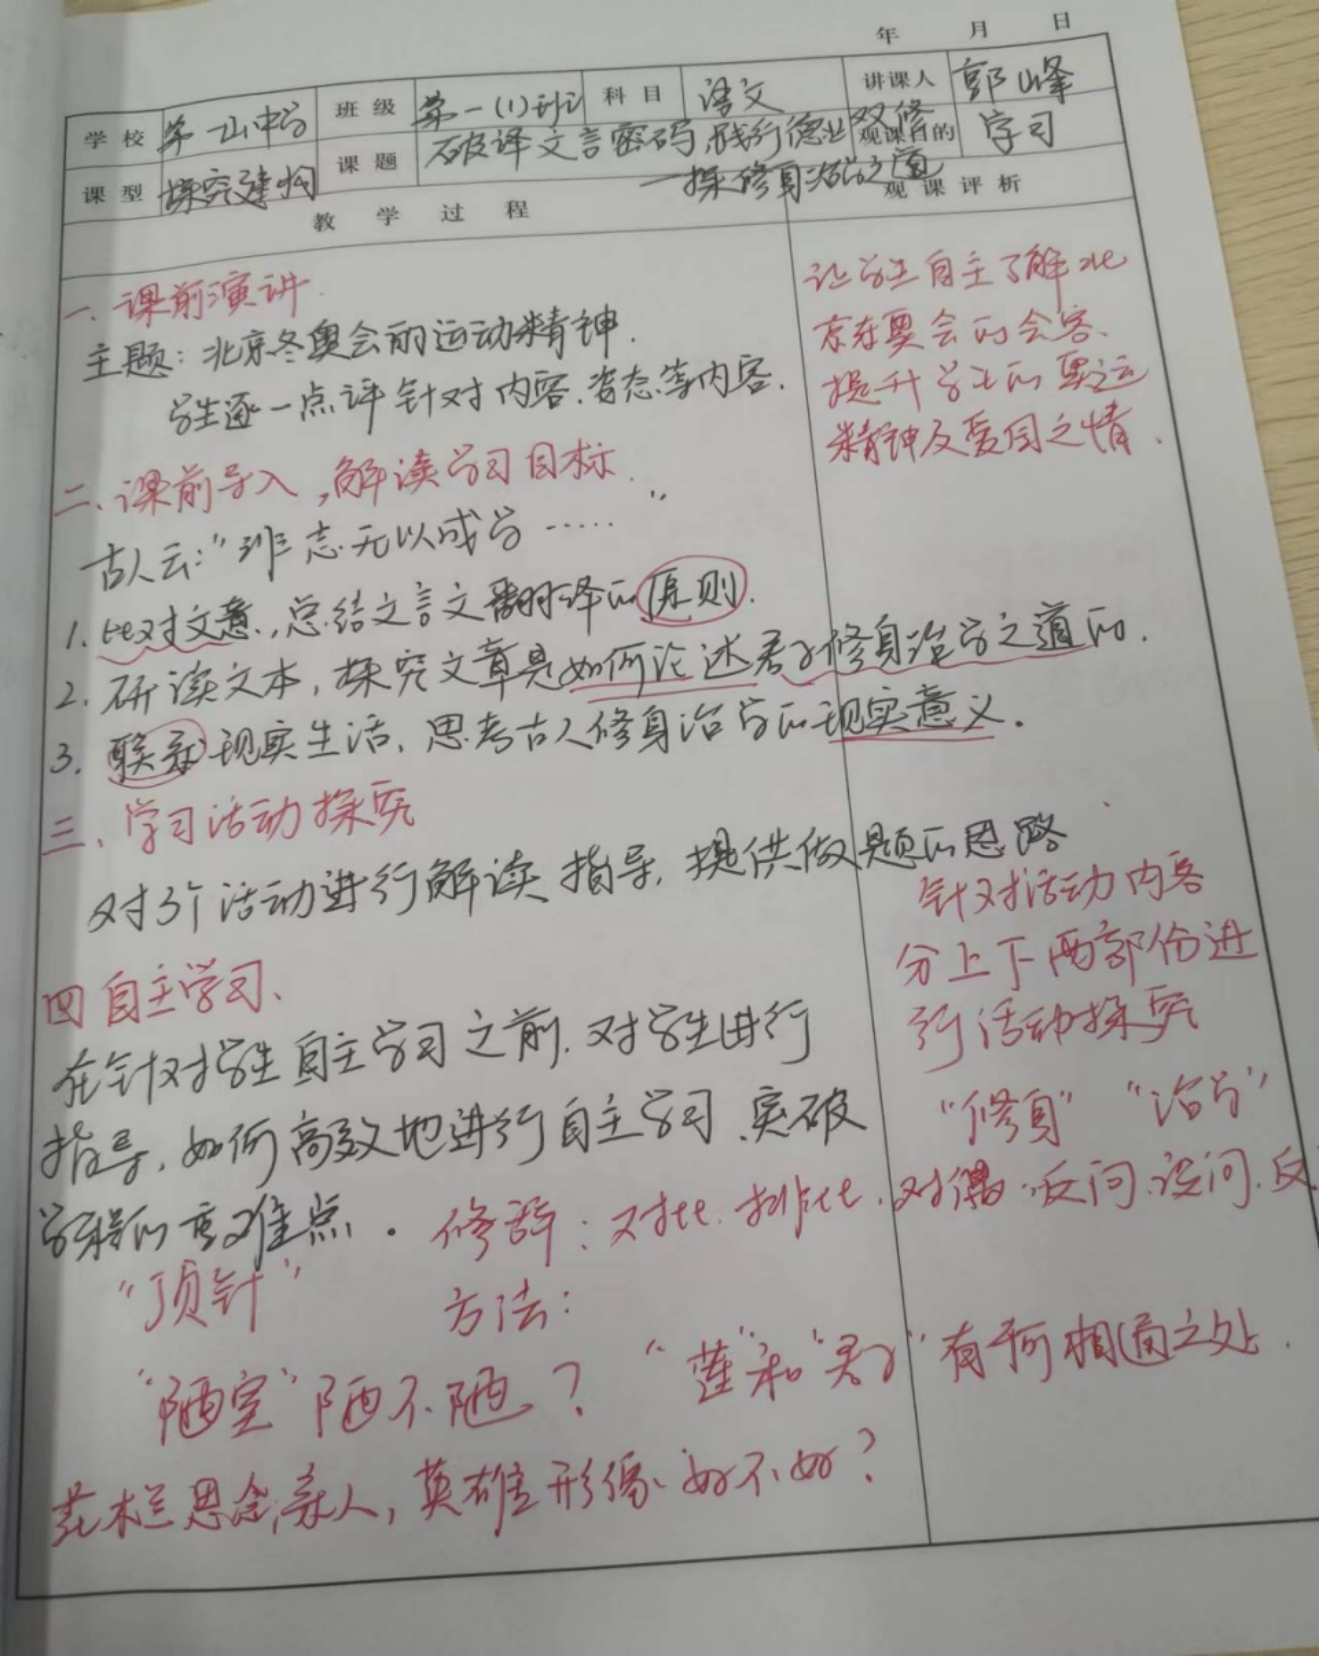 年 月 日
学校 第一山中学 班级 第一(1)班 科目 语文 讲课人 郭峰
课型 探究建构 课题 破译文言密码,践行德业双修 观课目的 学习
—探修身治学之道
教学过程 观课评析
一、课前演讲
主题:北京冬奥会的运动精神.
学生逐一点评针对内容、姿态等内容.
让学生自主了解北
京冬奥会的会客、
提升学生的奥运
精神及爱国之情.
二、课前导入,解读学习目标.
古人云:“非志无以成学……”
1.比对文意,总结文言文翻译的原则.
2.研读文本,探究文章是如何论述君子修身治学之道的.
3.联系现实生活,思考古人修身治学的现实意义.
三、学习活动探究
对3个活动进行解读指导,提供做题的思路
针对活动内容
分上下两部份进
行活动探究
“修身”“治学”
四 自主学习、
在针对学生自主学习之前.对学生进行
指导,如何高效地进行自主学习、突破
学程的重难点.
修辞:对比.排比.对偶.反问.设问.反
“顶针”
方法:
“陋室”陋不陋? “莲”和“君子”有何相通之处.
思念亲人,英雄形像、好不好?